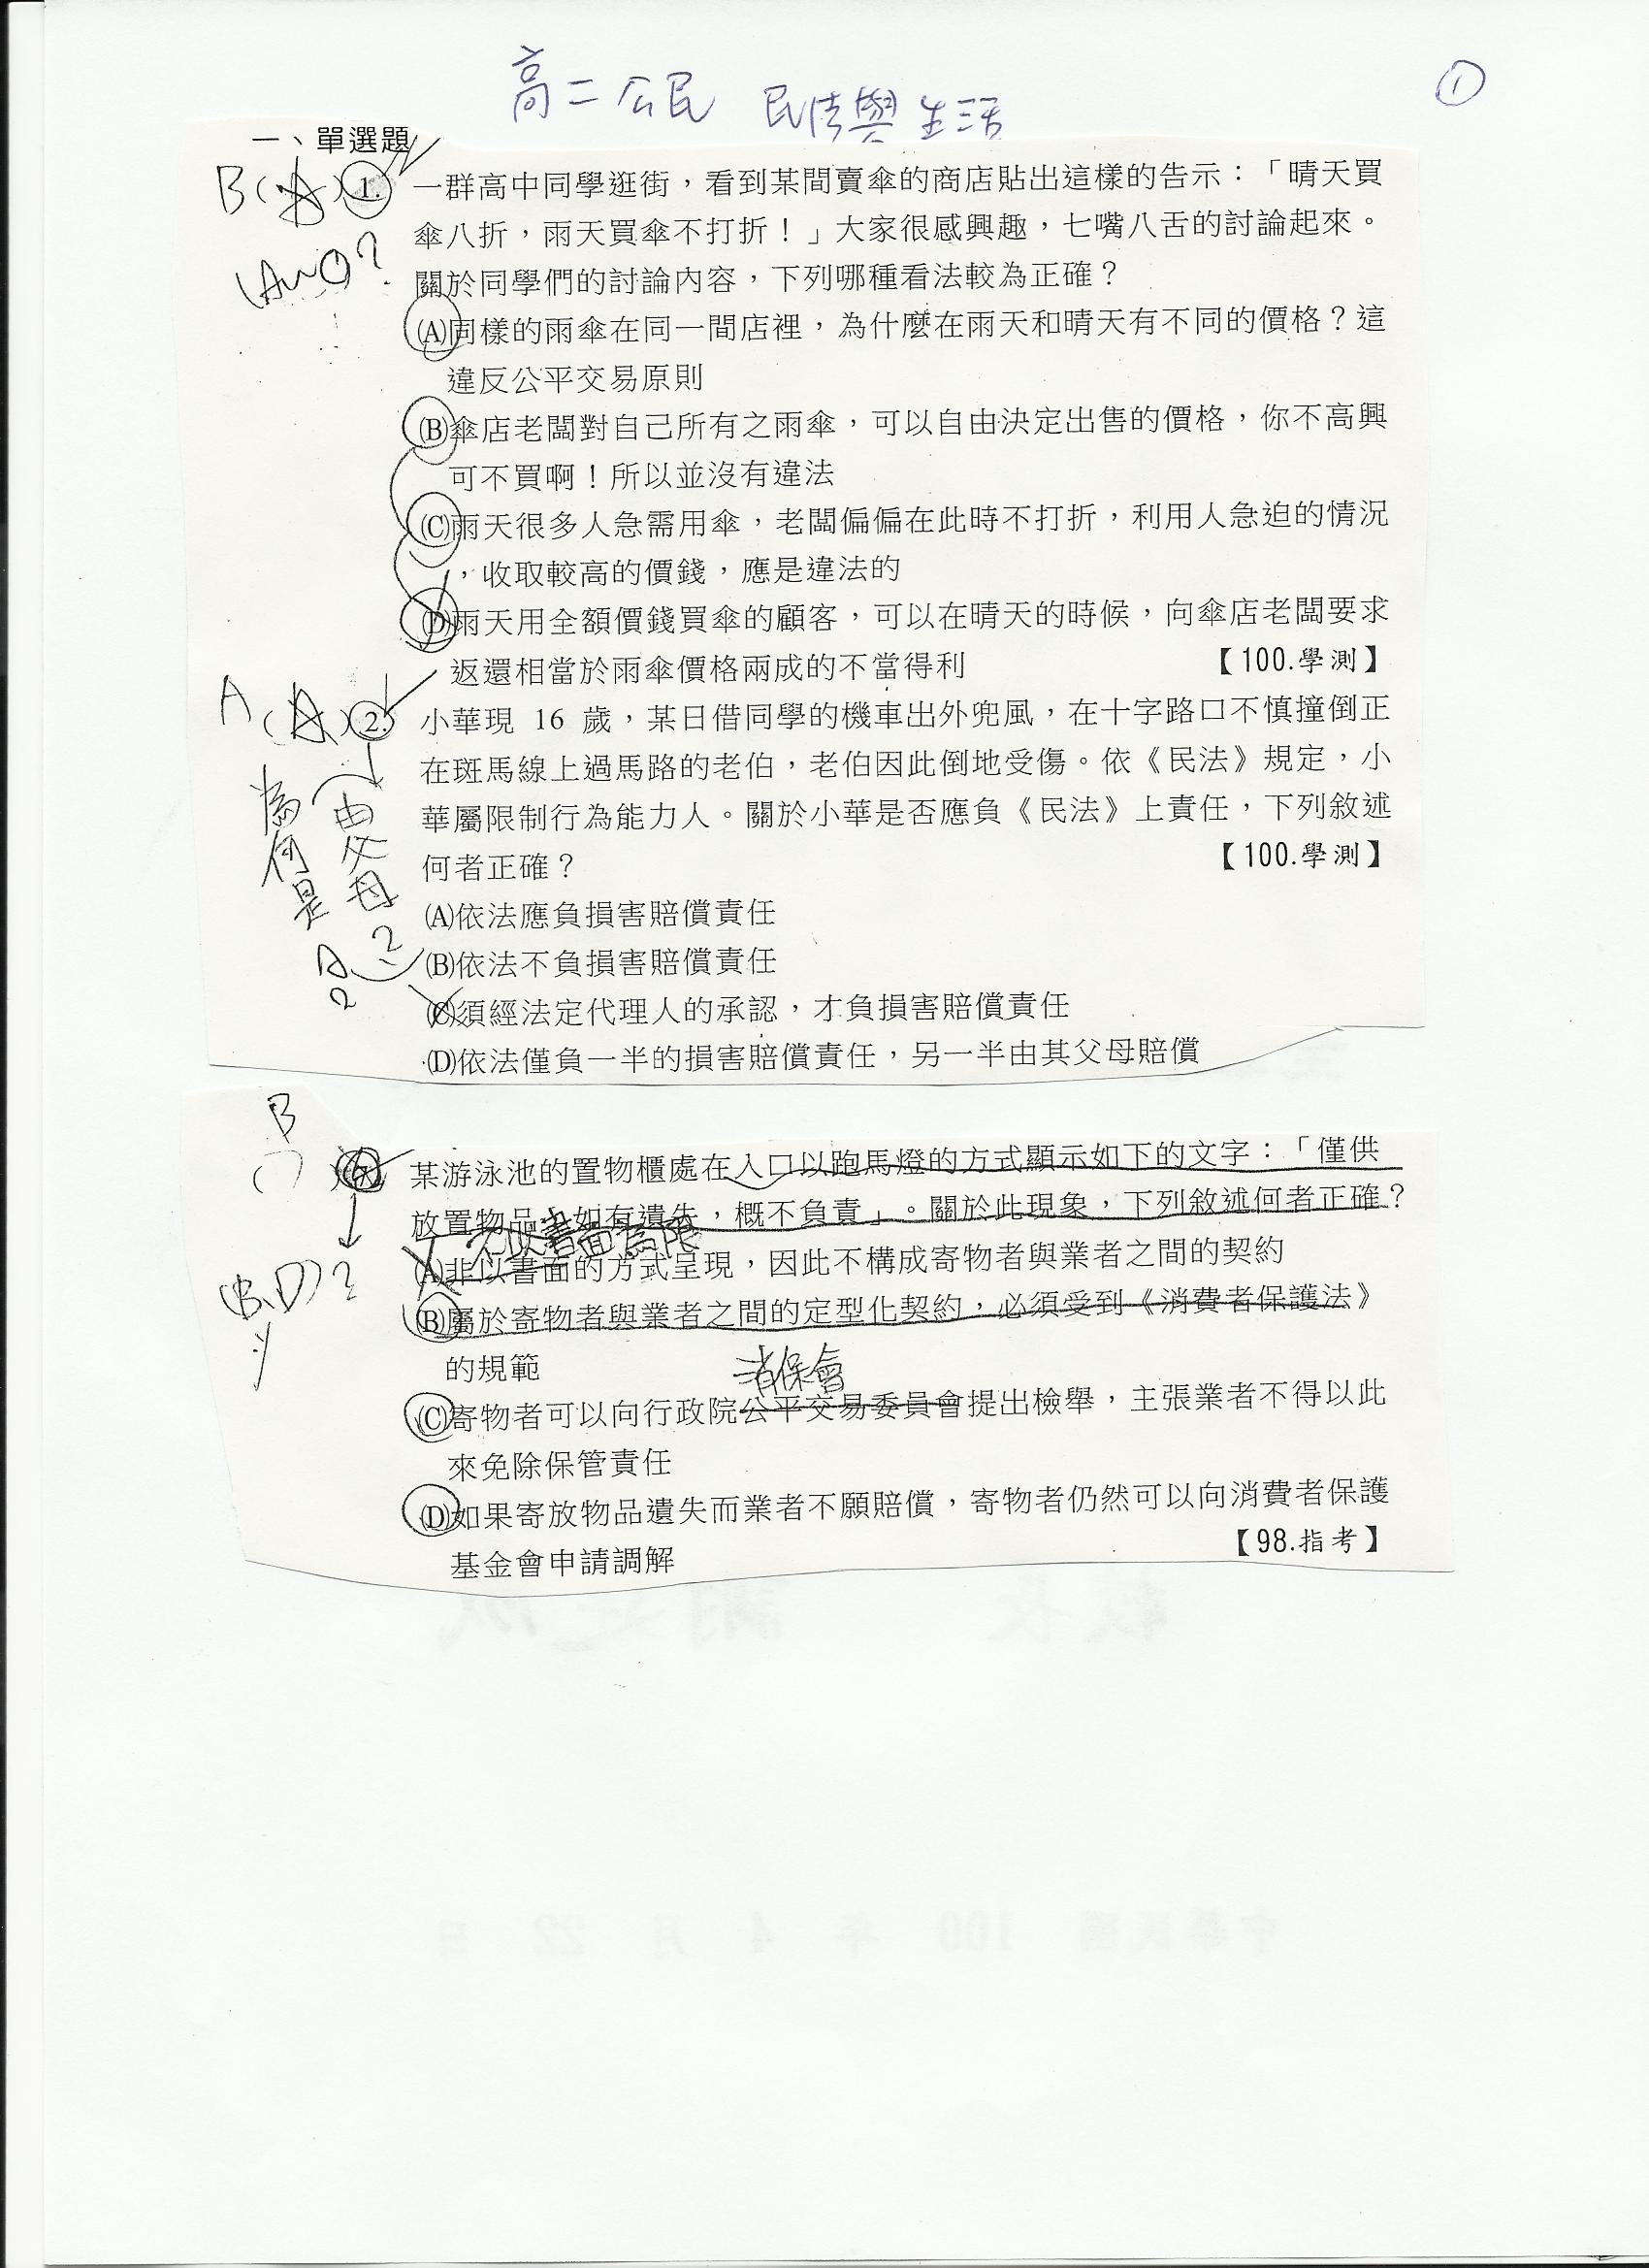 高二公民 民法與生活
①
一、單選題
B(A)1. 一群高中同學逛街，看到某間賣傘的商店貼出這樣的告示：「晴天買
傘八折，雨天買傘不打折！」大家很感興趣，七嘴八舌的討論起來。
關於同學們的討論內容，下列哪種看法較為正確？
(A~D)?
(A)同樣的雨傘在同一間店裡，為什麼在雨天和晴天有不同的價格？這
違反公平交易原則
(B)傘店老闆對自己所有之雨傘，可以自由決定出售的價格，你不高興
可不買啊！所以並沒有違法
(C)雨天很多人急需用傘，老闆偏偏在此時不打折，利用人急迫的情況
，收取較高的價錢，應是違法的
(D)雨天用全額價錢買傘的顧客，可以在晴天的時候，向傘店老闆要求
返還相當於雨傘價格兩成的不當得利 【100.學測】
A(A)2. 小華現 16 歲，某日借同學的機車出外兜風，在十字路口不慎撞倒正
在斑馬線上過馬路的老伯，老伯因此倒地受傷。依《民法》規定，小
華屬限制行為能力人。關於小華是否應負《民法》上責任，下列敘述
何者正確？ 【100.學測】
由父母?
為何是A?
(A)依法應負損害賠償責任
(B)依法不負損害賠償責任
(C)須經法定代理人的承認，才負損害賠償責任
(D)依法僅負一半的損害賠償責任，另一半由其父母賠償
B
( ) 某游泳池的置物櫃處在入口以跑馬燈的方式顯示如下的文字：「僅供
放置物品，如有遺失，概不負責」。關於此現象，下列敘述何者正確？
不以書面為限
(A)非以書面的方式呈現，因此不構成寄物者與業者之間的契約
(B、D)?
(B)屬於寄物者與業者之間的定型化契約，必須受到《消費者保護法》
的規範
消保會
(C)寄物者可以向行政院公平交易委員會提出檢舉，主張業者不得以此
來免除保管責任
(D)如果寄放物品遺失而業者不願賠償，寄物者仍然可以向消費者保護
基金會申請調解 【98.指考】